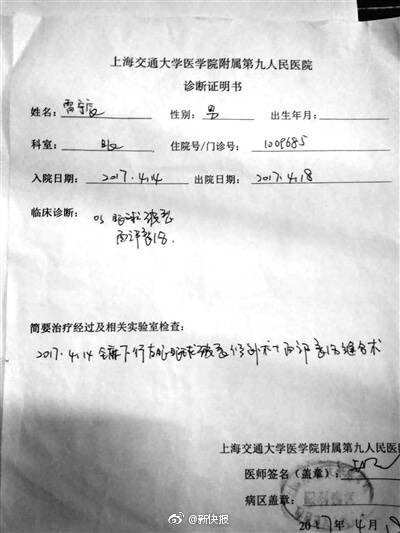 上海交通大学医学院附属第九人民医院
诊断证明书
姓名: 雷 性别: 男 出生年月:
科室: 眼 住院号/门诊号: 1009685
入院日期: 2017.4.14 出院日期: 2017.4.18
临床诊断: OS 眼球破裂
面部裂伤
简要治疗经过及相关实验室检查:
2017.4.14 全麻下行左眼眼球破裂修补术+面部裂伤缝合术
上海交通大学医学院附属第九人民医
医师签名(盖章):
病区盖章:
2017年4月18
@新快报